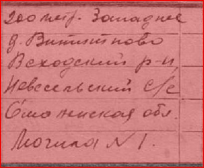 200 метр. Западнее
д. Витятново
Всходский р-н
Невсельский С/С
Смоленская обл.
Могила N 1.